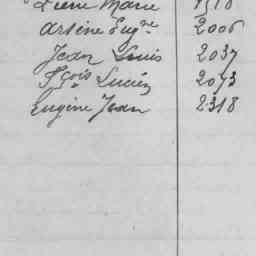 Pierre Marie
Arsène Eug.ne 2006
Jean Louis 2037
Fçois Lucien 2073
Eugène Jean 2318